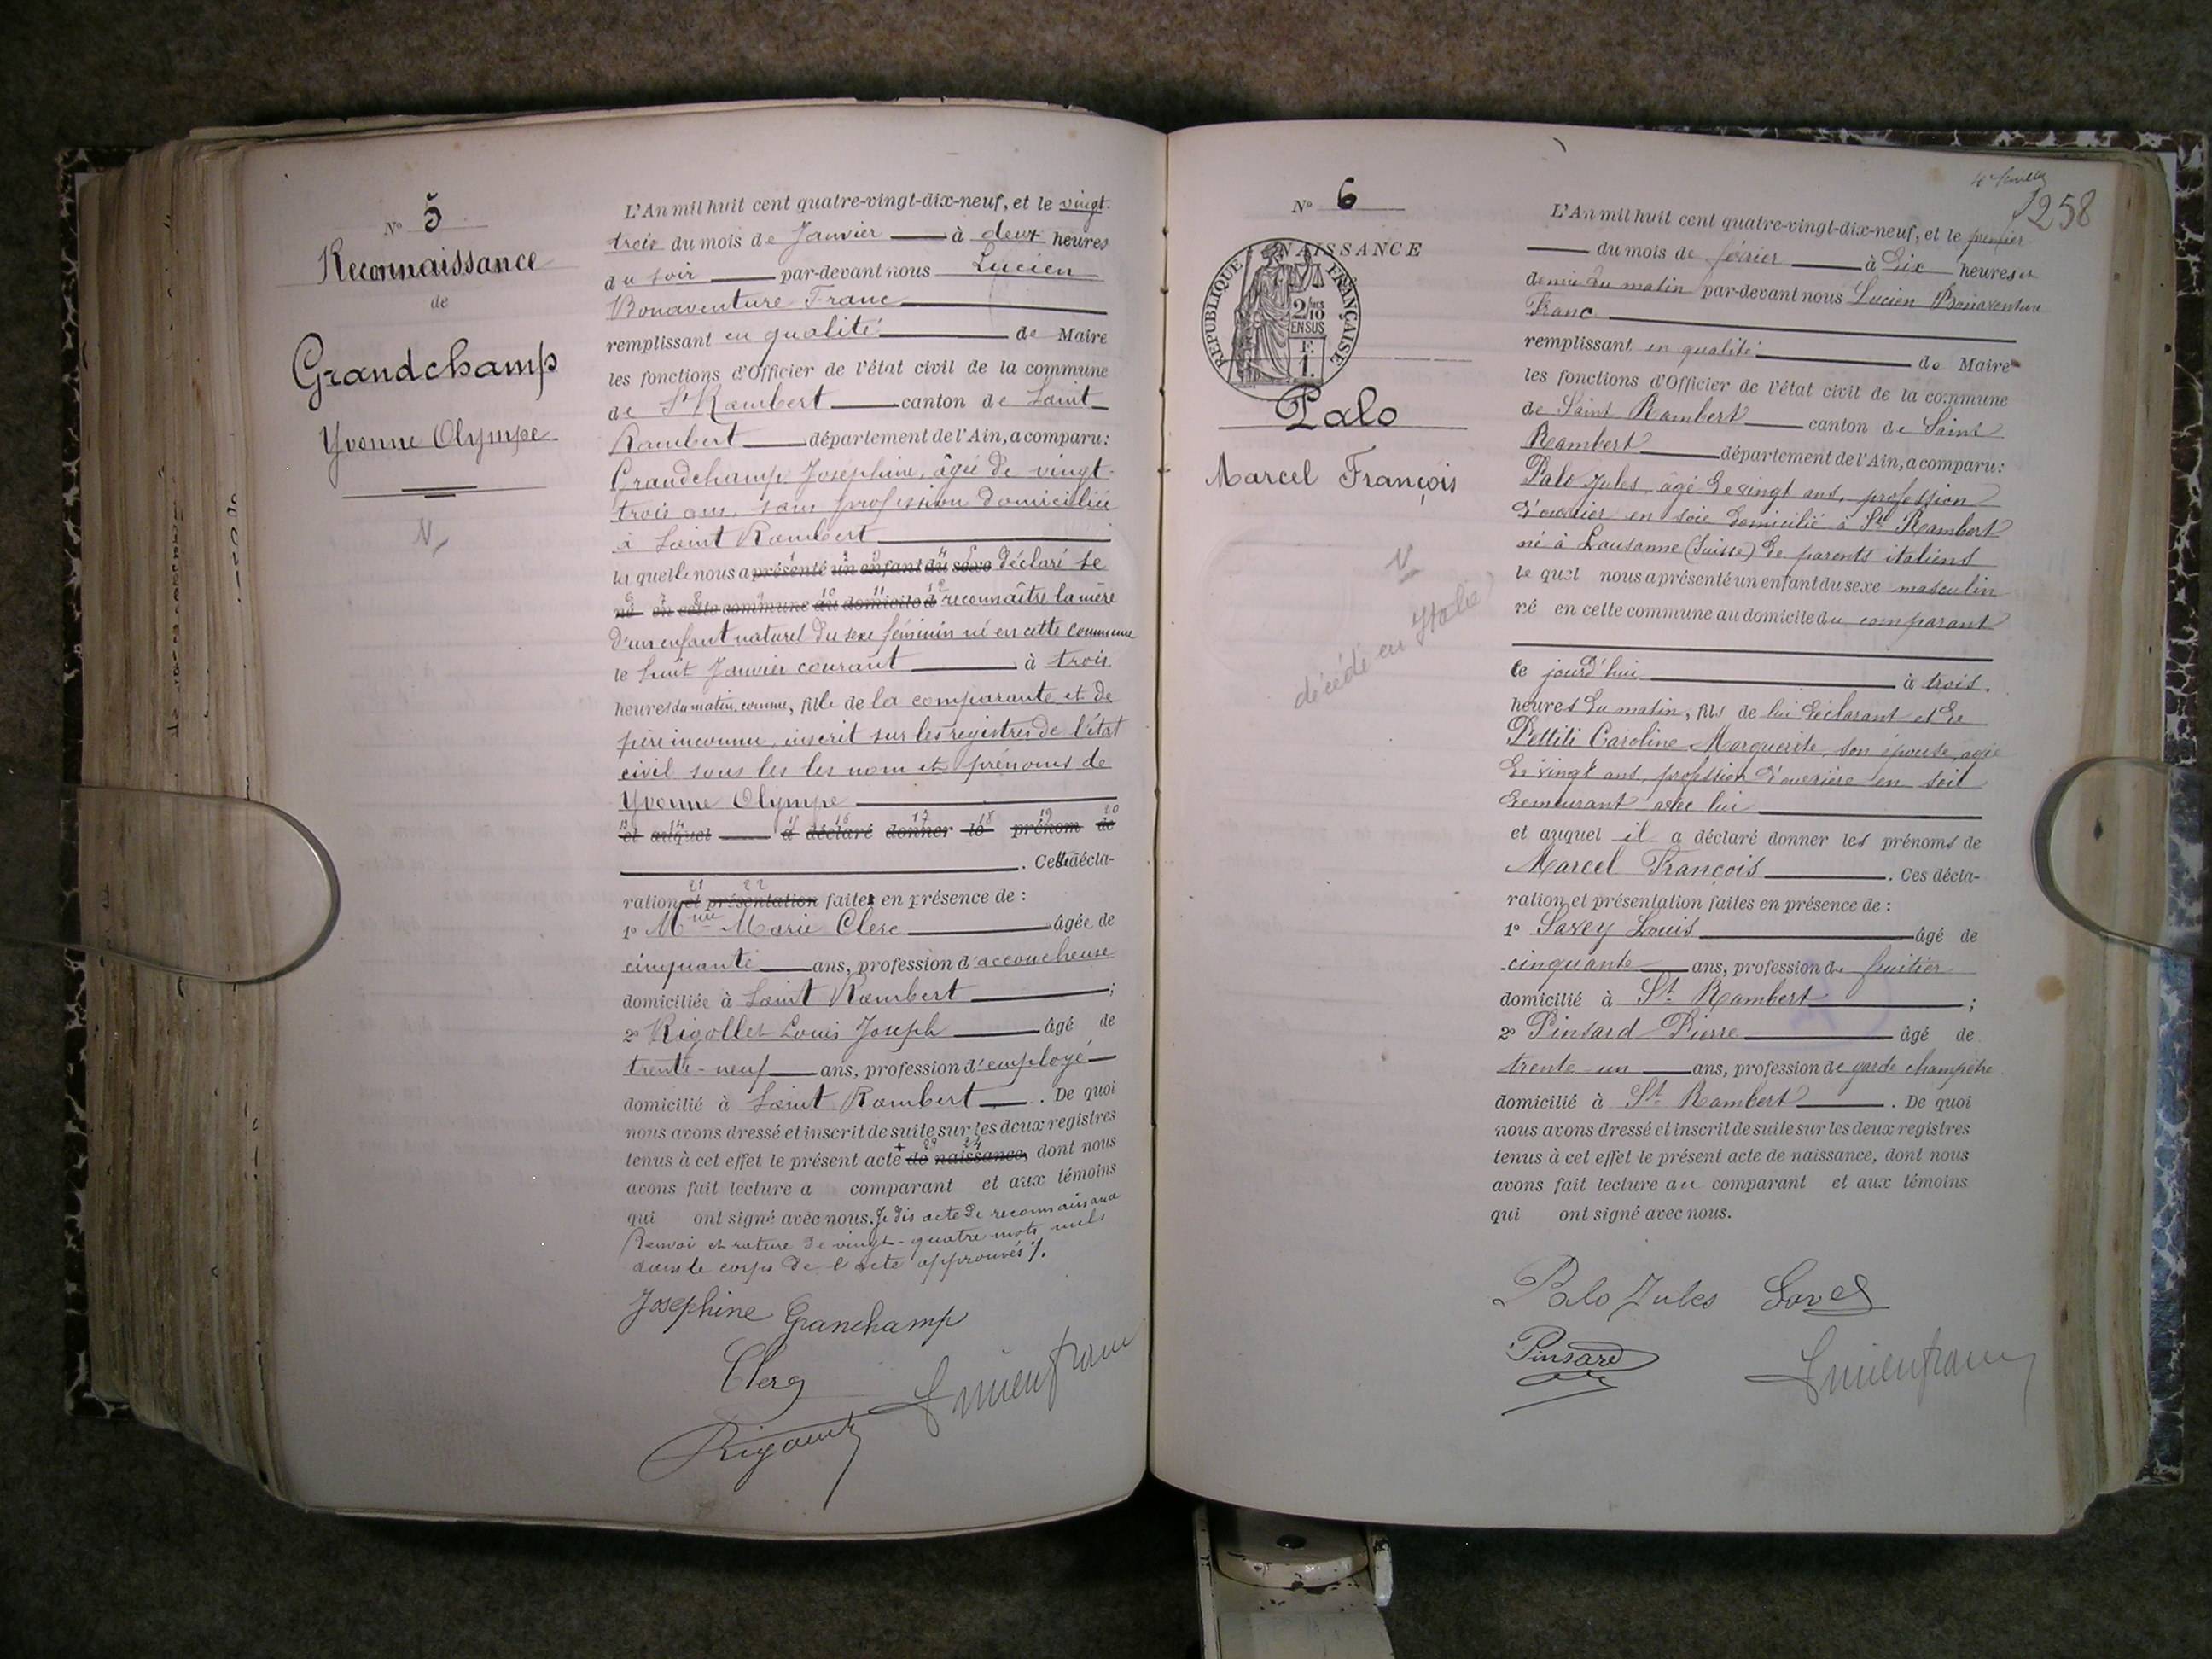 N° 5
Reconnaissance
de
Grandchamp
Yvonne Olympe
V
L'An mil huit cent quatre-vingt-dix-neuf, et le vingt-
trois du mois de Janvier à deux heures
du soir par-devant nous Lucien
Bonaventure Franc
remplissant en qualité de Maire
les fonctions d'Officier de l'état civil de la commune
de St Rambert canton de Saint
Rambert département de l'Ain, a comparu:
Grandchamp Joséphine, âgée de vingt-
trois ans, sans profession domiciliée
à Saint Rambert
laquelle nous a présenté un enfant du sexe déclaré se
né en cette commune au domicile d reconnaître la mère
d'un enfant naturel du sexe féminin né en cette commune
le huit Janvier courant à trois
heures du matin, comme, fille de la comparante et de
père inconnu, inscrit sur les registres de l'état
civil sous les les nom et prénoms de
Yvonne Olympe
et auquel a déclaré donner le prénom de
. Cette décla-
ration et présentation faite en présence de :
1° Mme Marie Clerc âgée de
cinquante ans, profession d'accoucheuse
domiciliée à Saint Rambert ;
2° Rigollet Louis Joseph âgé de
trente-neuf ans, profession d'employé
domicilié à Saint Rambert . De quoi
nous avons dressé et inscrit de suite sur les deux registres
tenus à cet effet le présent acte de naissance, dont nous
avons fait lecture a comparant et aux témoins
qui ont signé avec nous. Je dis acte de reconnaissance
Renvoi et rature de vingt-quatre mots nuls
dans le corps de l'acte approuvés ./.
Josephine Granchamp
Clerc
N° 6
NAISSANCE
RÉPUBLIQUE FRANÇAISE
2/10
EN SUS
F.
1.
Palo
Marcel François
V
décédé en Italie
258
L'An mil huit cent quatre-vingt-dix-neuf, et le premier
du mois de février à dix heures et
demie du matin par-devant nous Lucien Bonaventure
Franc
remplissant en qualité de Maire
les fonctions d'Officier de l'état civil de la commune
de Saint Rambert canton de Saint
Rambert département de l'Ain, a comparu:
Palo Jules, âgé de vingt ans, profession
d'ouvrier en soie domicilié à St Rambert
né à Lausanne (Suisse) de parents italiens
lequel nous a présenté un enfant du sexe masculin
né en cette commune au domicile du comparant
ce jourd'hui à trois
heures du matin, fils de lui déclarant et de
Pettiti Caroline Marguerite, son épouse, agée
de vingt ans, profession d'ouvrière en soie
demeurant avec lui
et auquel il a déclaré donner les prénoms de
Marcel François . Ces décla-
ration et présentation faites en présence de :
1° Savey Louis âgé de
cinquante ans, profession de fruitier
domicilié à St Rambert ;
2° Pinsard Pierre âgé de
trente un ans, profession de garde champêtre
domicilié à St Rambert . De quoi
nous avons dressé et inscrit de suite sur les deux registres
tenus à cet effet le présent acte de naissance, dont nous
avons fait lecture au comparant et aux témoins
qui ont signé avec nous.
Palo Jules
Pinsard